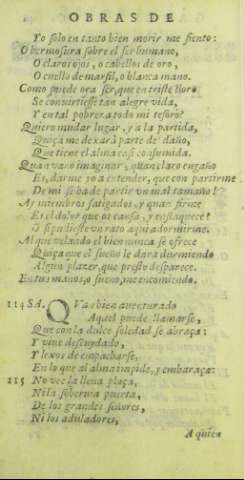 OBRAS DE
Yo solo en tanto bien morir me siento:
O hermosura sobre el ser humano,
O claros ojos, o cabellos de oro,
O cuello de marfil, o blanca mano.
Como puede ora ser, que en triste lloro
Se conuirtiesse tan alegre vida,
Y en tal pobreza todo mi tesoro?
Quiero mudar lugar, y a la partida,
Quiça me dexarà parte del daño,
Que tiene el alma casi consumida.
Quan vano imaginar, quan claro engaño
Es, darme yo a entender, que con partirme
De mi se ha de partir vn mal tamaño!
Ay miembros fatigados, y quan firme
Es el dolor que os cansa, y enflaquece!
O si pudiesse vn rato aqui adormirme.
Al que velando el bien nunca se ofrece
Quiça que el sueño le dara durmiendo
Algun plazer, que presto desparece.
En tus manos, o sueno, me encomiendo.
114 SA. Quan bien auenturado
Aquel puede llamarse,
Que con la dulce soledad se abraça:
Y viue descuydado,
Y lexos de empacharse,
En lo que al alma impide, y embaraça:
115 No vee la llena plaça,
Ni la soberuia puerta,
De los grandes señores,
Ni los aduladores,
A quien